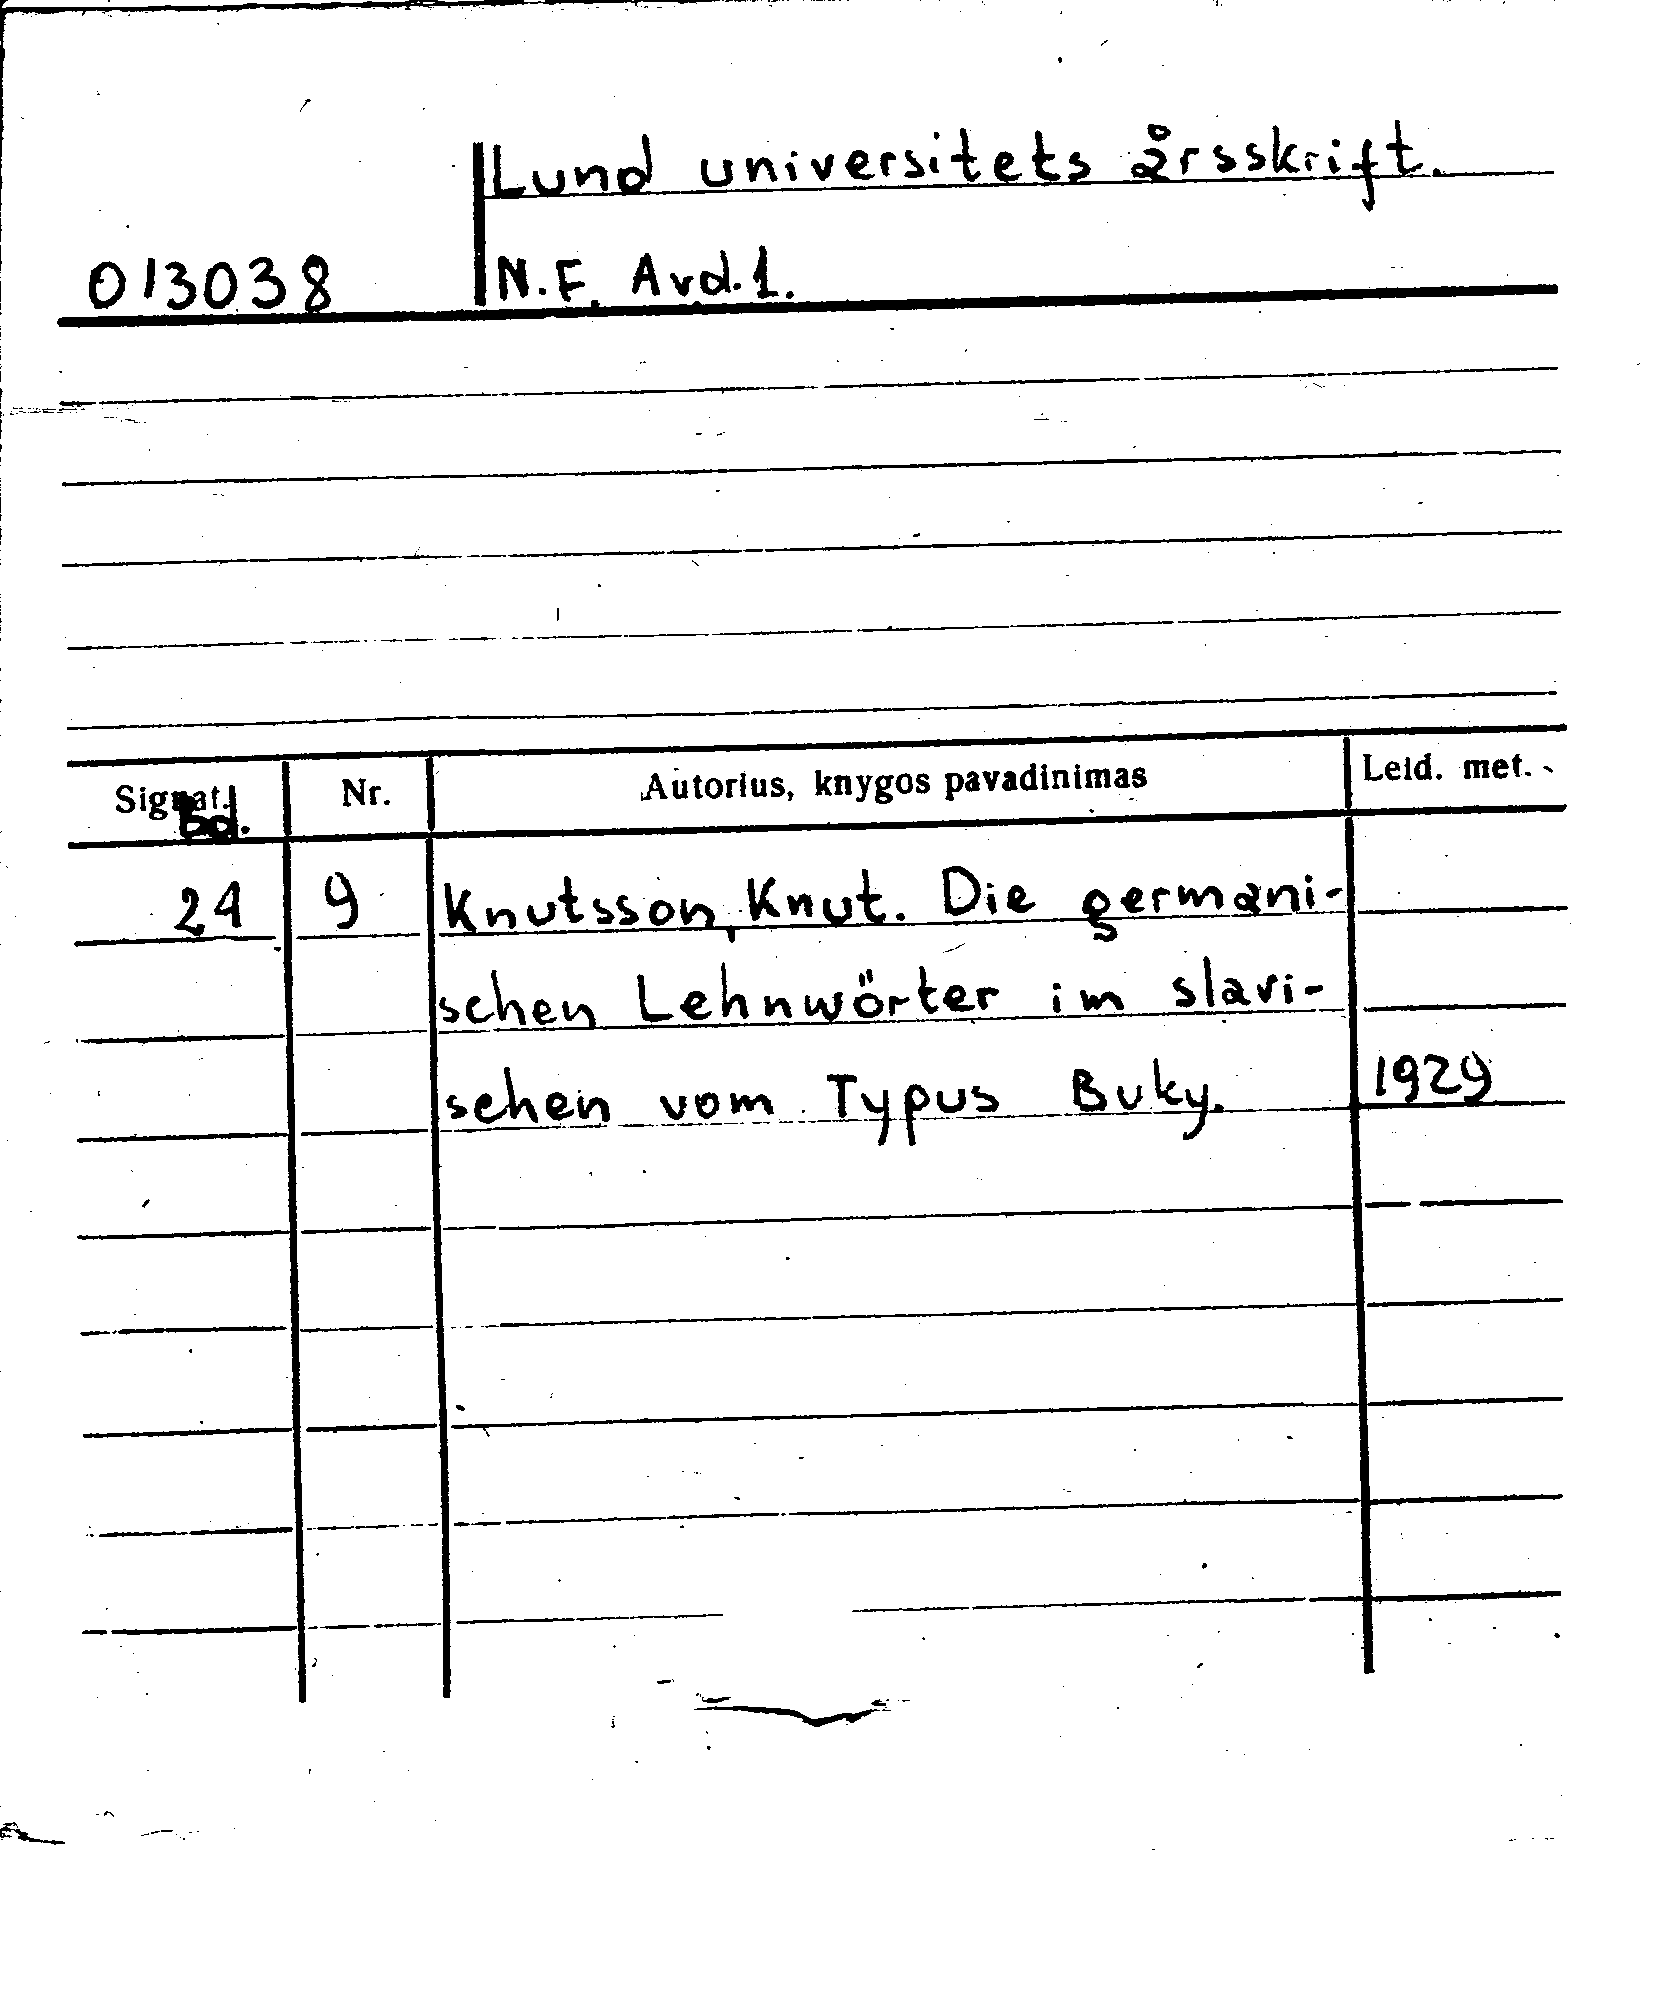 Lund universitets årsskrift.
013038 N.F. Avd.1.
Signat. Nr. Autorius, knygos pavadinimas Leid. met.
Bd.
24 9 Knutsson, Knut. Die germani-
schen Lehnwörter im slavi-
schen vom Typus Buky. 1929